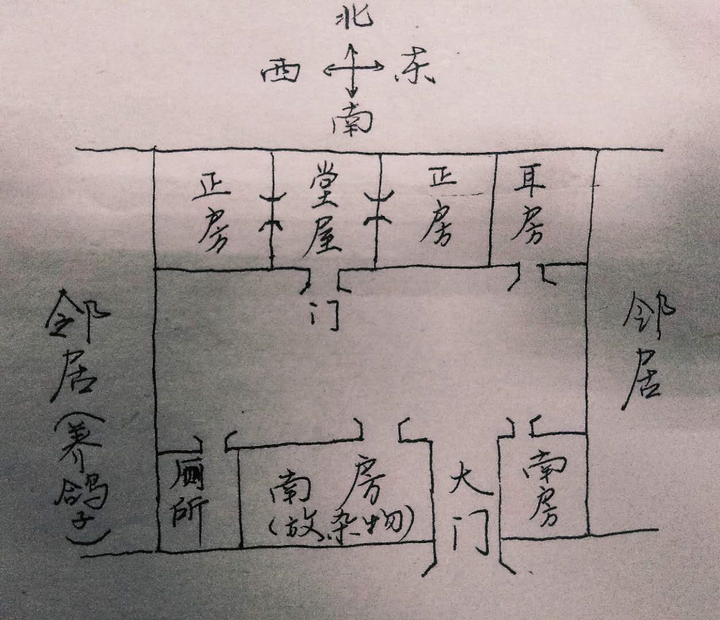 北
西 东
南
正房
堂屋
正房
耳房
门
邻居(养鸽子)
邻居
厕所
南房
(放杂物)
大门
南房